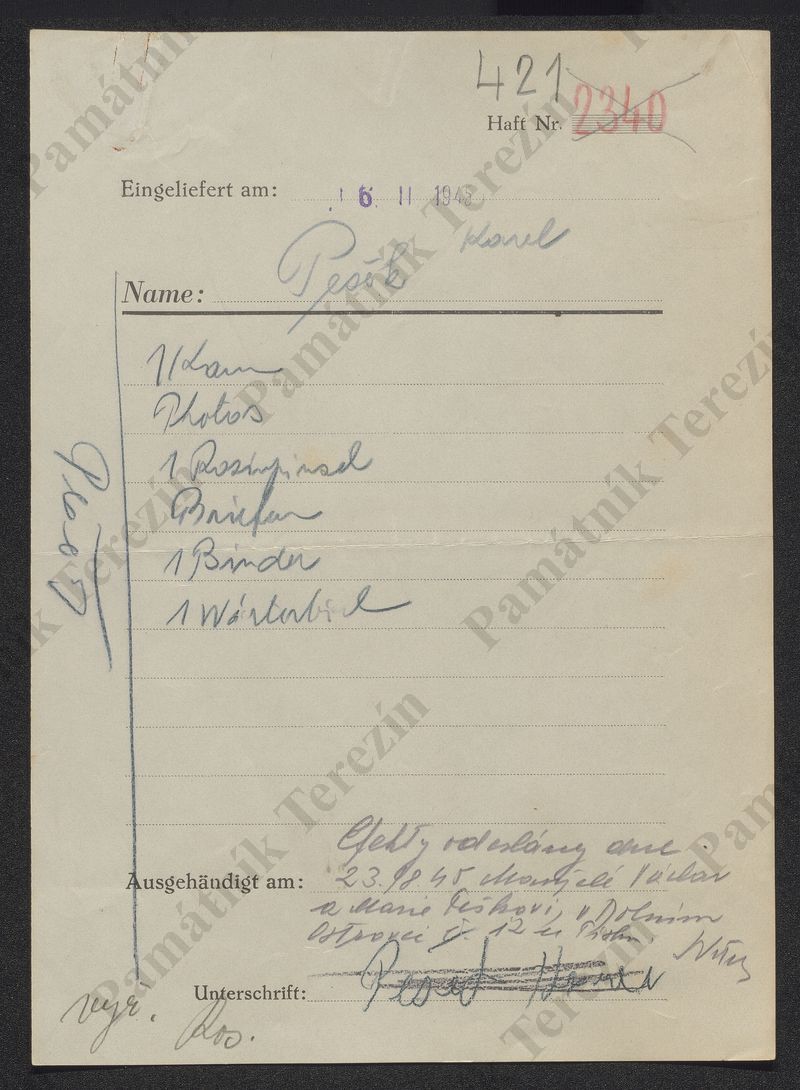 421
Haft Nr. 2340
Eingeliefert am: 16 II 1945
Karel
Name: Pešek
1 Kam
Photos
1 Rasierpinsel
Briefe
1 Binder
1 Wörterbuch
Efekty odeslány dne
Ausgehändigt am: 23./8 45 Manželé Václav
a Marie Peškovi, v Dolním
Ostrovci č. 12 u
Unterschrift: Karel
vyř.
Ros.
Památník Terezín